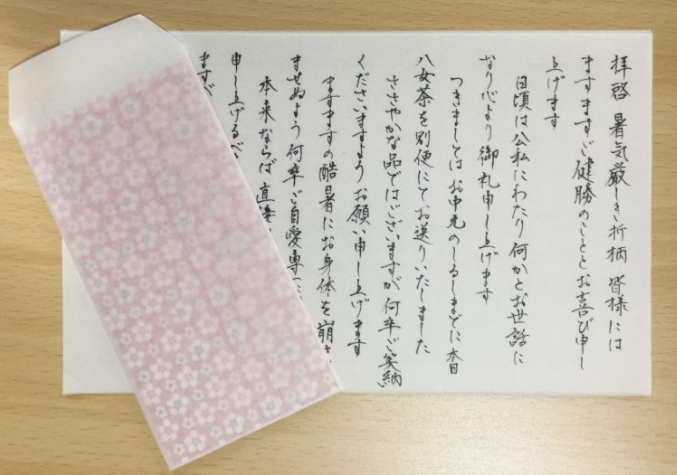 拝啓 暑気厳しき折柄 皆様には
ますますご健勝のこととお喜び申し
上げます
日頃は公私にわたり何かとお世話に
なり心より御礼申し上げます
つきましてはお中元のしるしまでに本日
八女茶を別便にてお送りいたしました
ささやかな品ではございますが何卒ご笑納
くださいますようお願い申し上げます
ますますの酷暑にお身体を崩さ
ませぬよう何卒ご自愛専
本来ならば直接
申し上げるべ
ますが